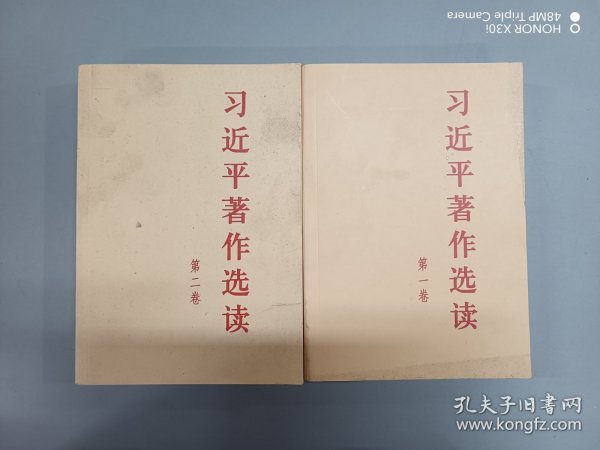 习近平著作选读
第二卷
习近平著作选读
第一卷
HONOR X30i
48MP Triple Camera
孔夫子旧书网
www.kongfz.com